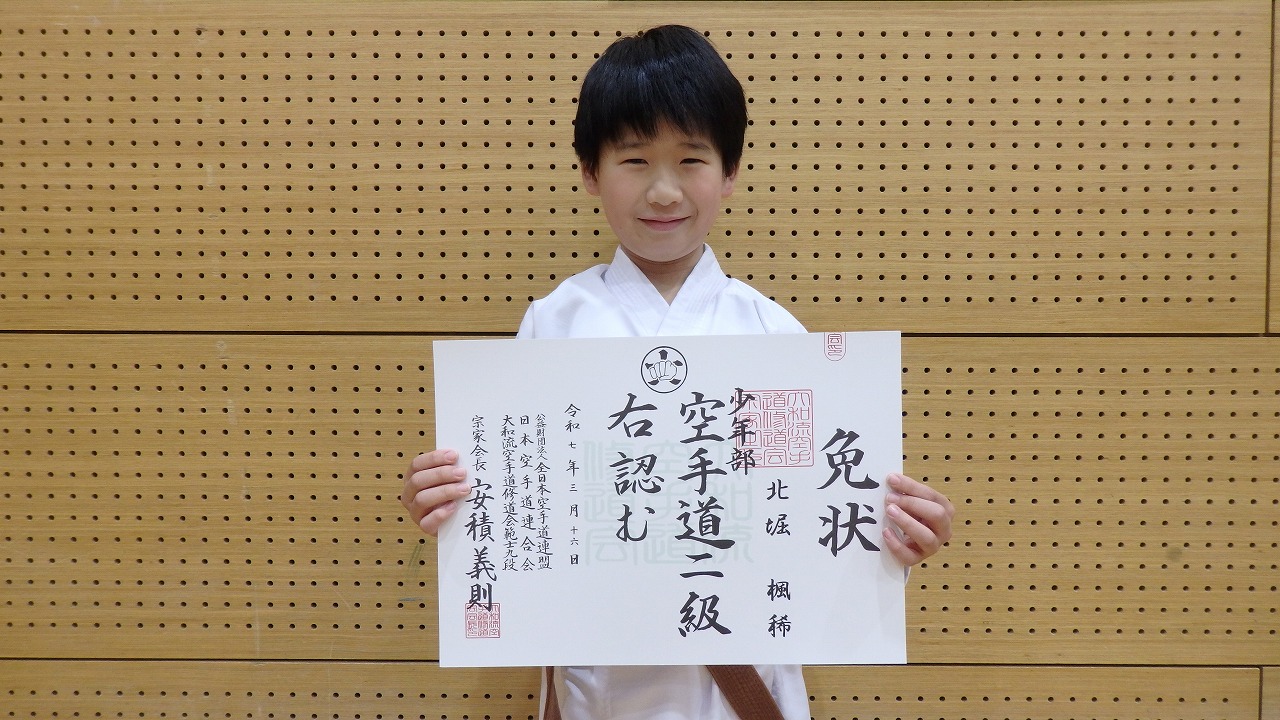 免状
北堀 楓稀
少年部
空手道二級
右認む
令和七年三月十六日
公益財団法人全日本空手道連盟
日本空手道連合会
大和流空手道修道会範士九段
宗家会長 安積義則